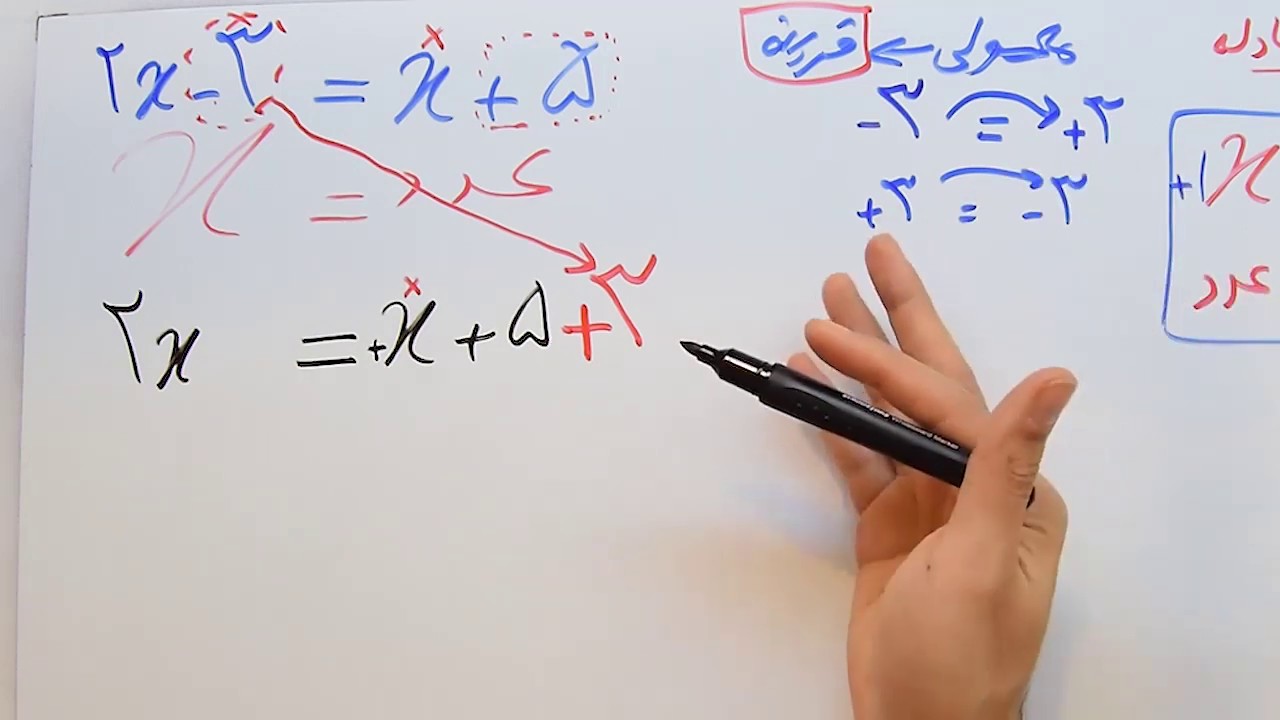 ۲x - ۳ = x + ۵
x = عدد
۲x = +x + ۵ + ۳
معمولی ← قرینه
-۳ = +۳
+۳ = -۳
ادله
+۱x
عدد